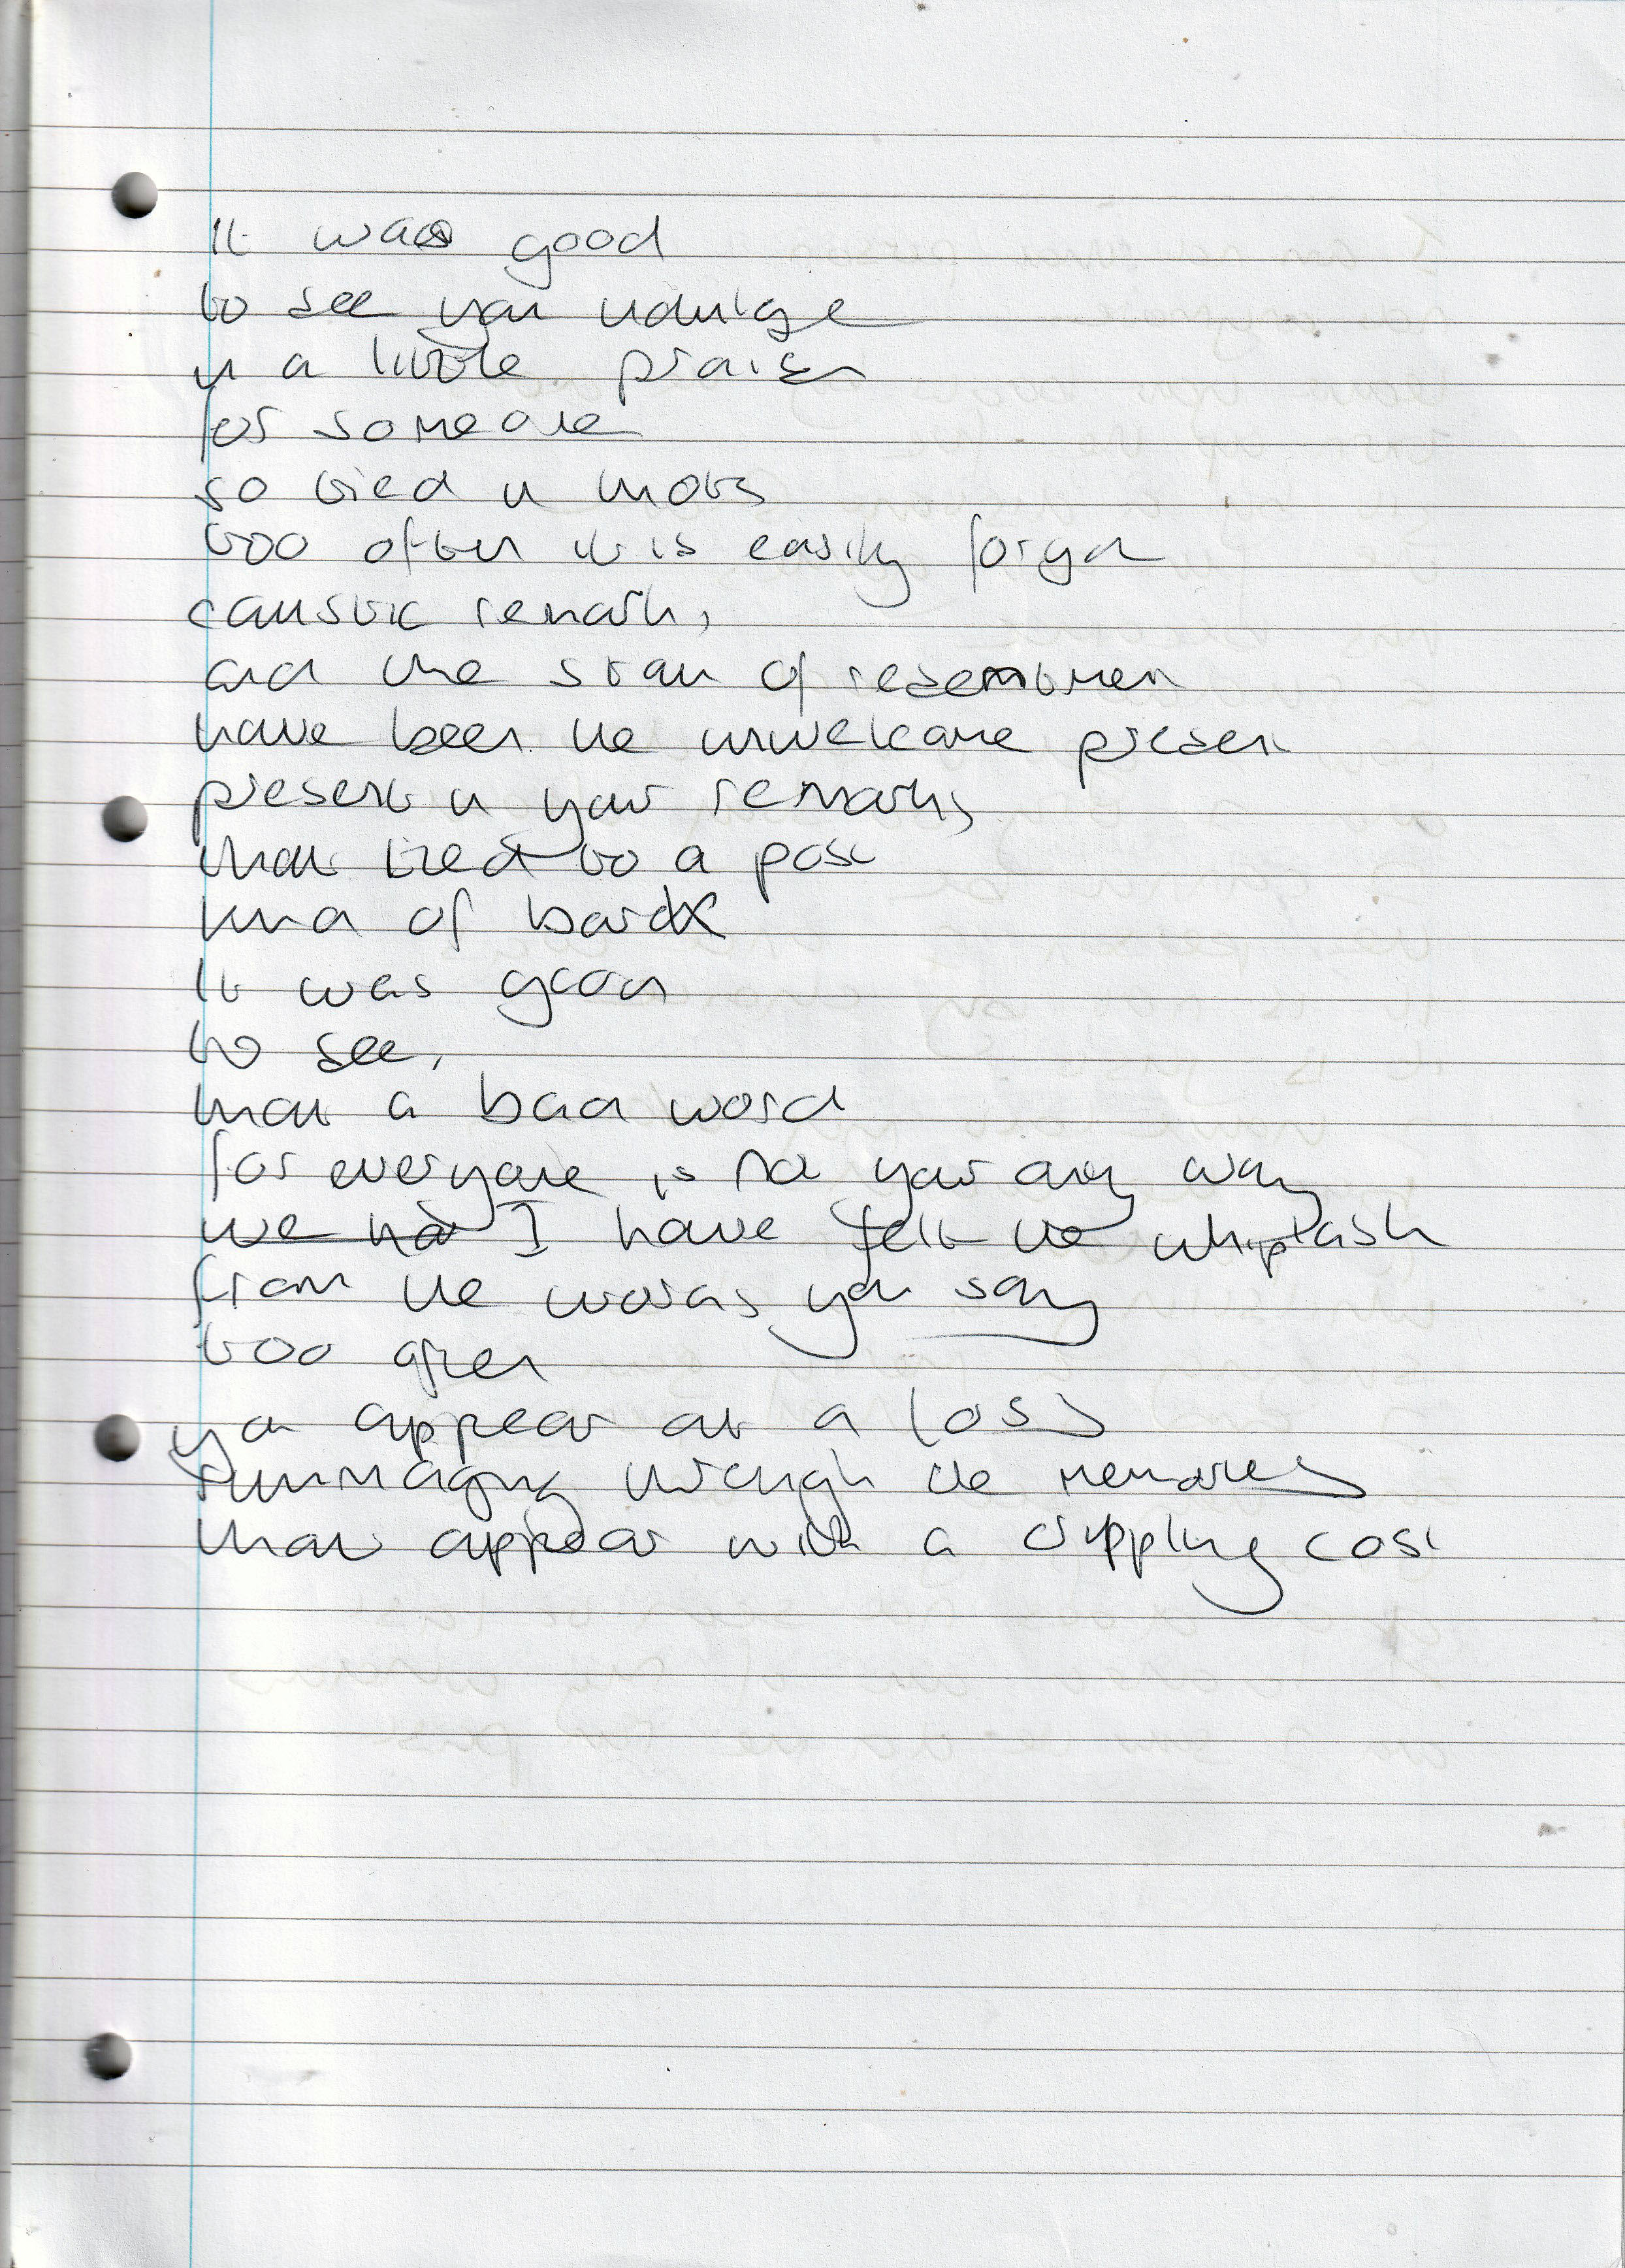 It was good
to see you indulge
in a little praise
for someone
so tied in knots
too often it is easily forgot
caustic remarks
and the stain of resentment
have been the unwelcome present
present in your remarks
that tied to a post
kind of bark
It was good
to see,
that a bad word
for everyone is not your only way
we ha I have felt the whiplash
from the words you say
too often
you appear at a loss
rummaging through the memories
that appear with a crippling cost